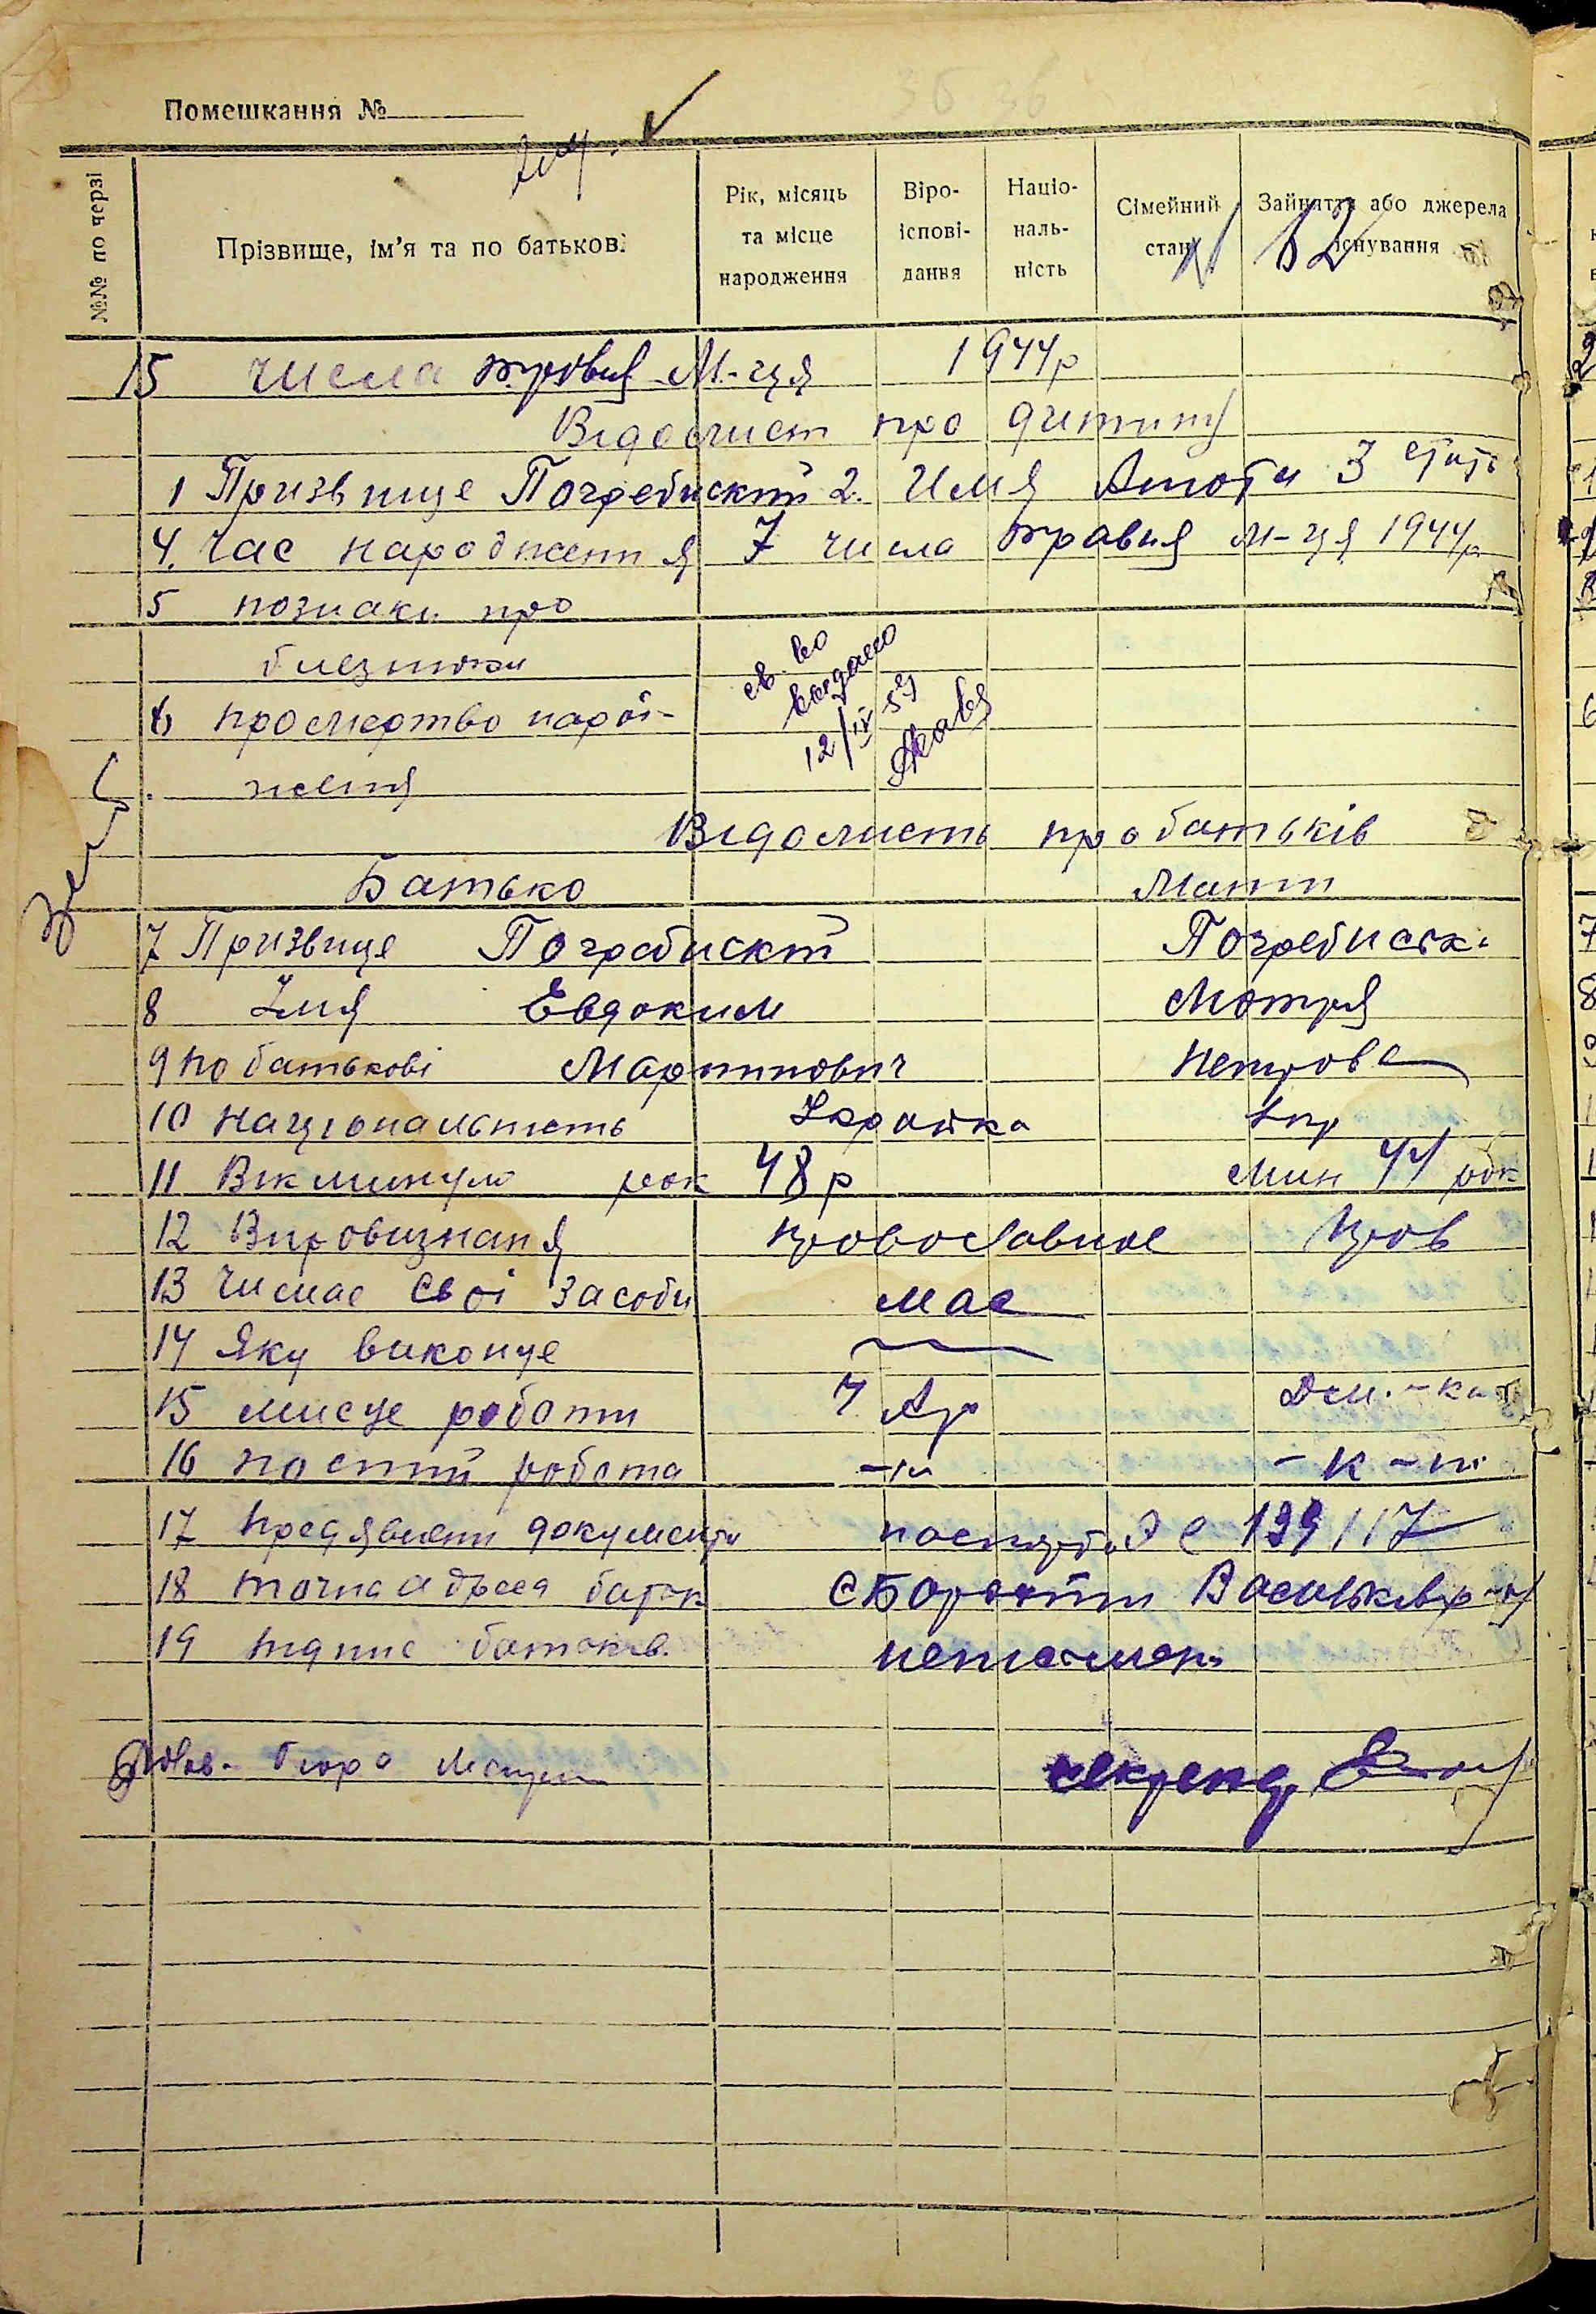 Помешкання №
№№ по черзі
Прізвище, ім'я та по батькові
Рік, місяць та місце народження
Віро-іспові-дання
Націо-наль-ність
Сімейний стан
Зайняття або джерела існування
12
15 числа травня М-ця 1944р
Відомист про дитину
1 Призвище Погребиский 2. Имя 3 стать
4. Час народження 7 числа травня м-ця 1944р
5 познаки про
близнюки
св. во
видано
12/IX 59
6 промертво народ-
ження
Відомисть про батьків
Батько Мати
7 Призвище Погребиский Погребиск.
8 Имя Евдоким Мотря
9 по батькові Мартинович Петрова
10 Национальність Украйка Укр
11 Вік минуло рок 48 р мин 44 рок
12 Віровизнаня провославное пров
13 Чи мае свої засоби мае
14 Яку виконуе
15 мисце роботи
16 постій робота
17 предявлени документи 139/17
18 точна адреса батьк С
19 підпис батьків неписмен.
бюро секретар